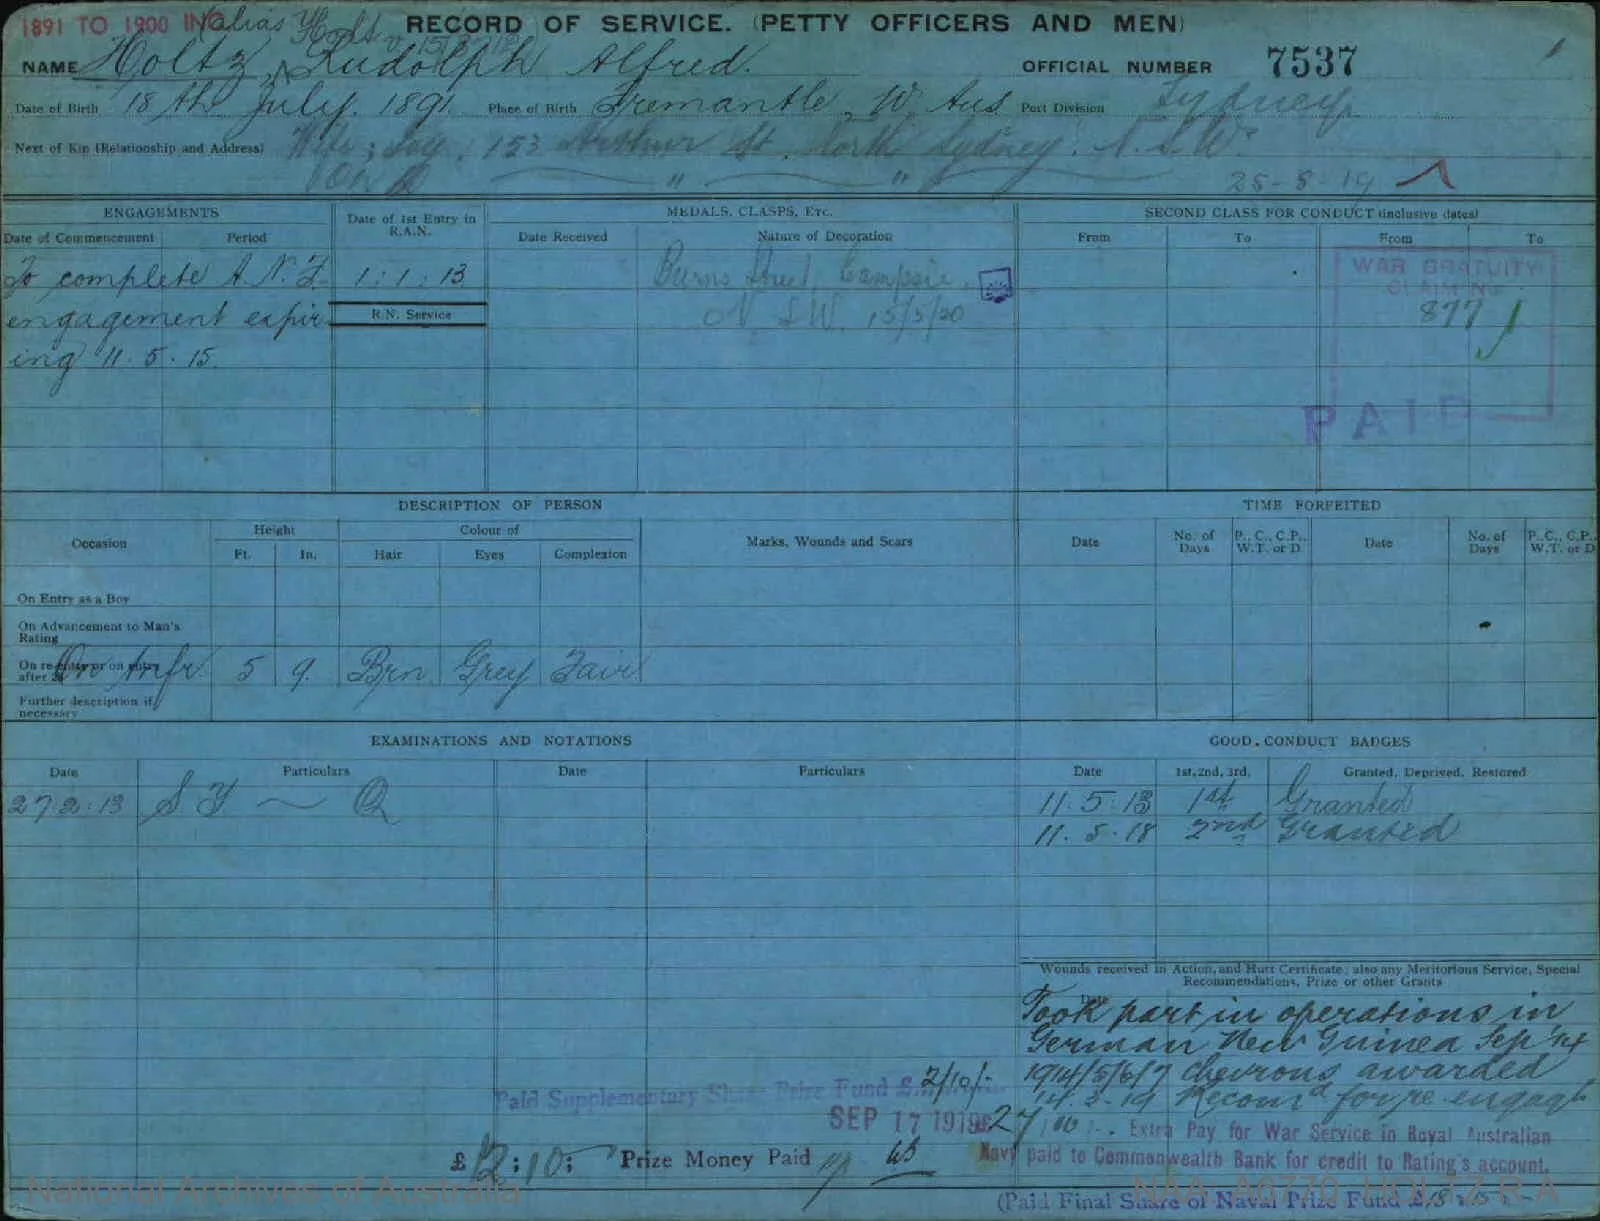 1891 TO 1900 INC
(alias Holt
RECORD OF SERVICE. (PETTY OFFICERS AND MEN)
NAME Holtz, Rudolph Alfred.
OFFICIAL NUMBER 7537
Date of Birth 18th July. 1891. Place of Birth Fremantle, W. Aus. Port Division Sydney
Next of Kin (Relationship and Address) Wife; 153 Arthur St. North Sydney. N.S.W.
" " 25-8-19
ENGAGEMENTS
Date of Commencement Period
To complete A.N.F. engagement expir-
ing 11.5.15.
Date of 1st Entry in R.A.N.
1:1:13
R.N. Service
MEDALS, CLASPS, Etc.
Date Received Nature of Decoration
Burns Street, Campsie,
N.S.W. 15/5/20
SECOND CLASS FOR CONDUCT (inclusive dates)
From To From To
WAR GRATUITY
CLAIM No.
877
PAID
DESCRIPTION OF PERSON
Occasion Height Colour of Marks, Wounds and Scars
Ft. In. Hair Eyes Complexion
On Entry as a Boy
On Advancement to Man's Rating
On re-entry or on entry after
On tranfr. 5 9. Brn Grey Fair
Further description if necessary
TIME FORFEITED
Date No. of Days P., C., C.P., W.T. or D. Date No. of Days P., C., C.P., W.T. or D.
EXAMINATIONS AND NOTATIONS
Date Particulars Date Particulars
27.2.13 S Y — Q
GOOD CONDUCT BADGES
Date 1st, 2nd, 3rd, Granted, Deprived, Restored
11.5.13 1st Granted
11.5.18 2nd Granted
Wounds received in Action, and Hurt Certificate; also any Meritorious Service, Special
Recommendations, Prize or other Grants
Took part in operations in
German New Guinea Sep '14
1914/5/6/7 chevrons awarded
Recomd for re-engagt
Paid Supplementary Share Prize Fund £ 2/10/-
SEP 17 1919
£27 Extra Pay for War Service in Royal Australian
Navy paid to Commonwealth Bank for credit to Rating's account.
£12:10: Prize Money Paid
(Paid Final Share of Naval Prize Fund £
National Archives of Australia
NAA: A6770, HOLTZ R A